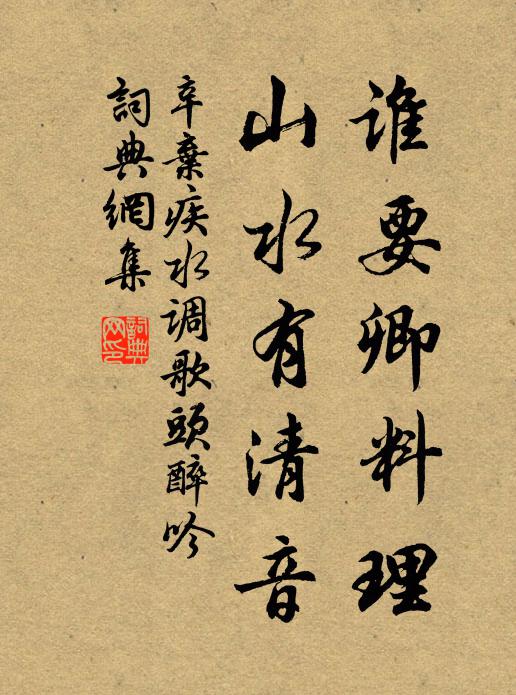 誰要卿料理
山水有清音
辛棄疾水调歌頭醉吟
詞典網集
詞典網印